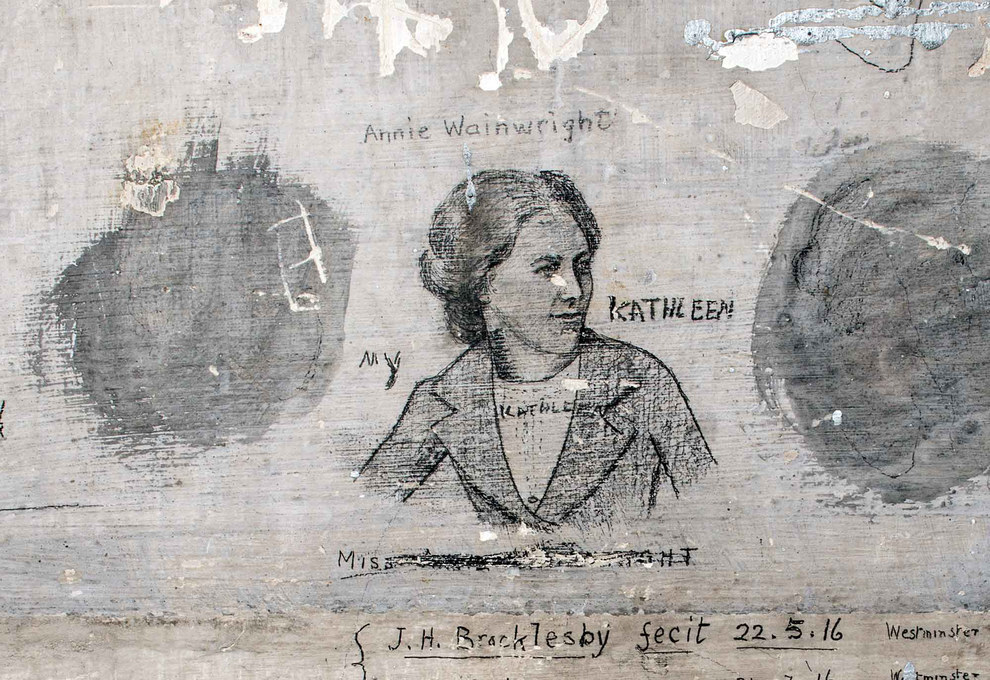 Annie Wainwright
KATHLEEN
MY
KATHLEEN
Miss
J.H. Brocklesby fecit 22.5.16 Westminster
16 Westminster